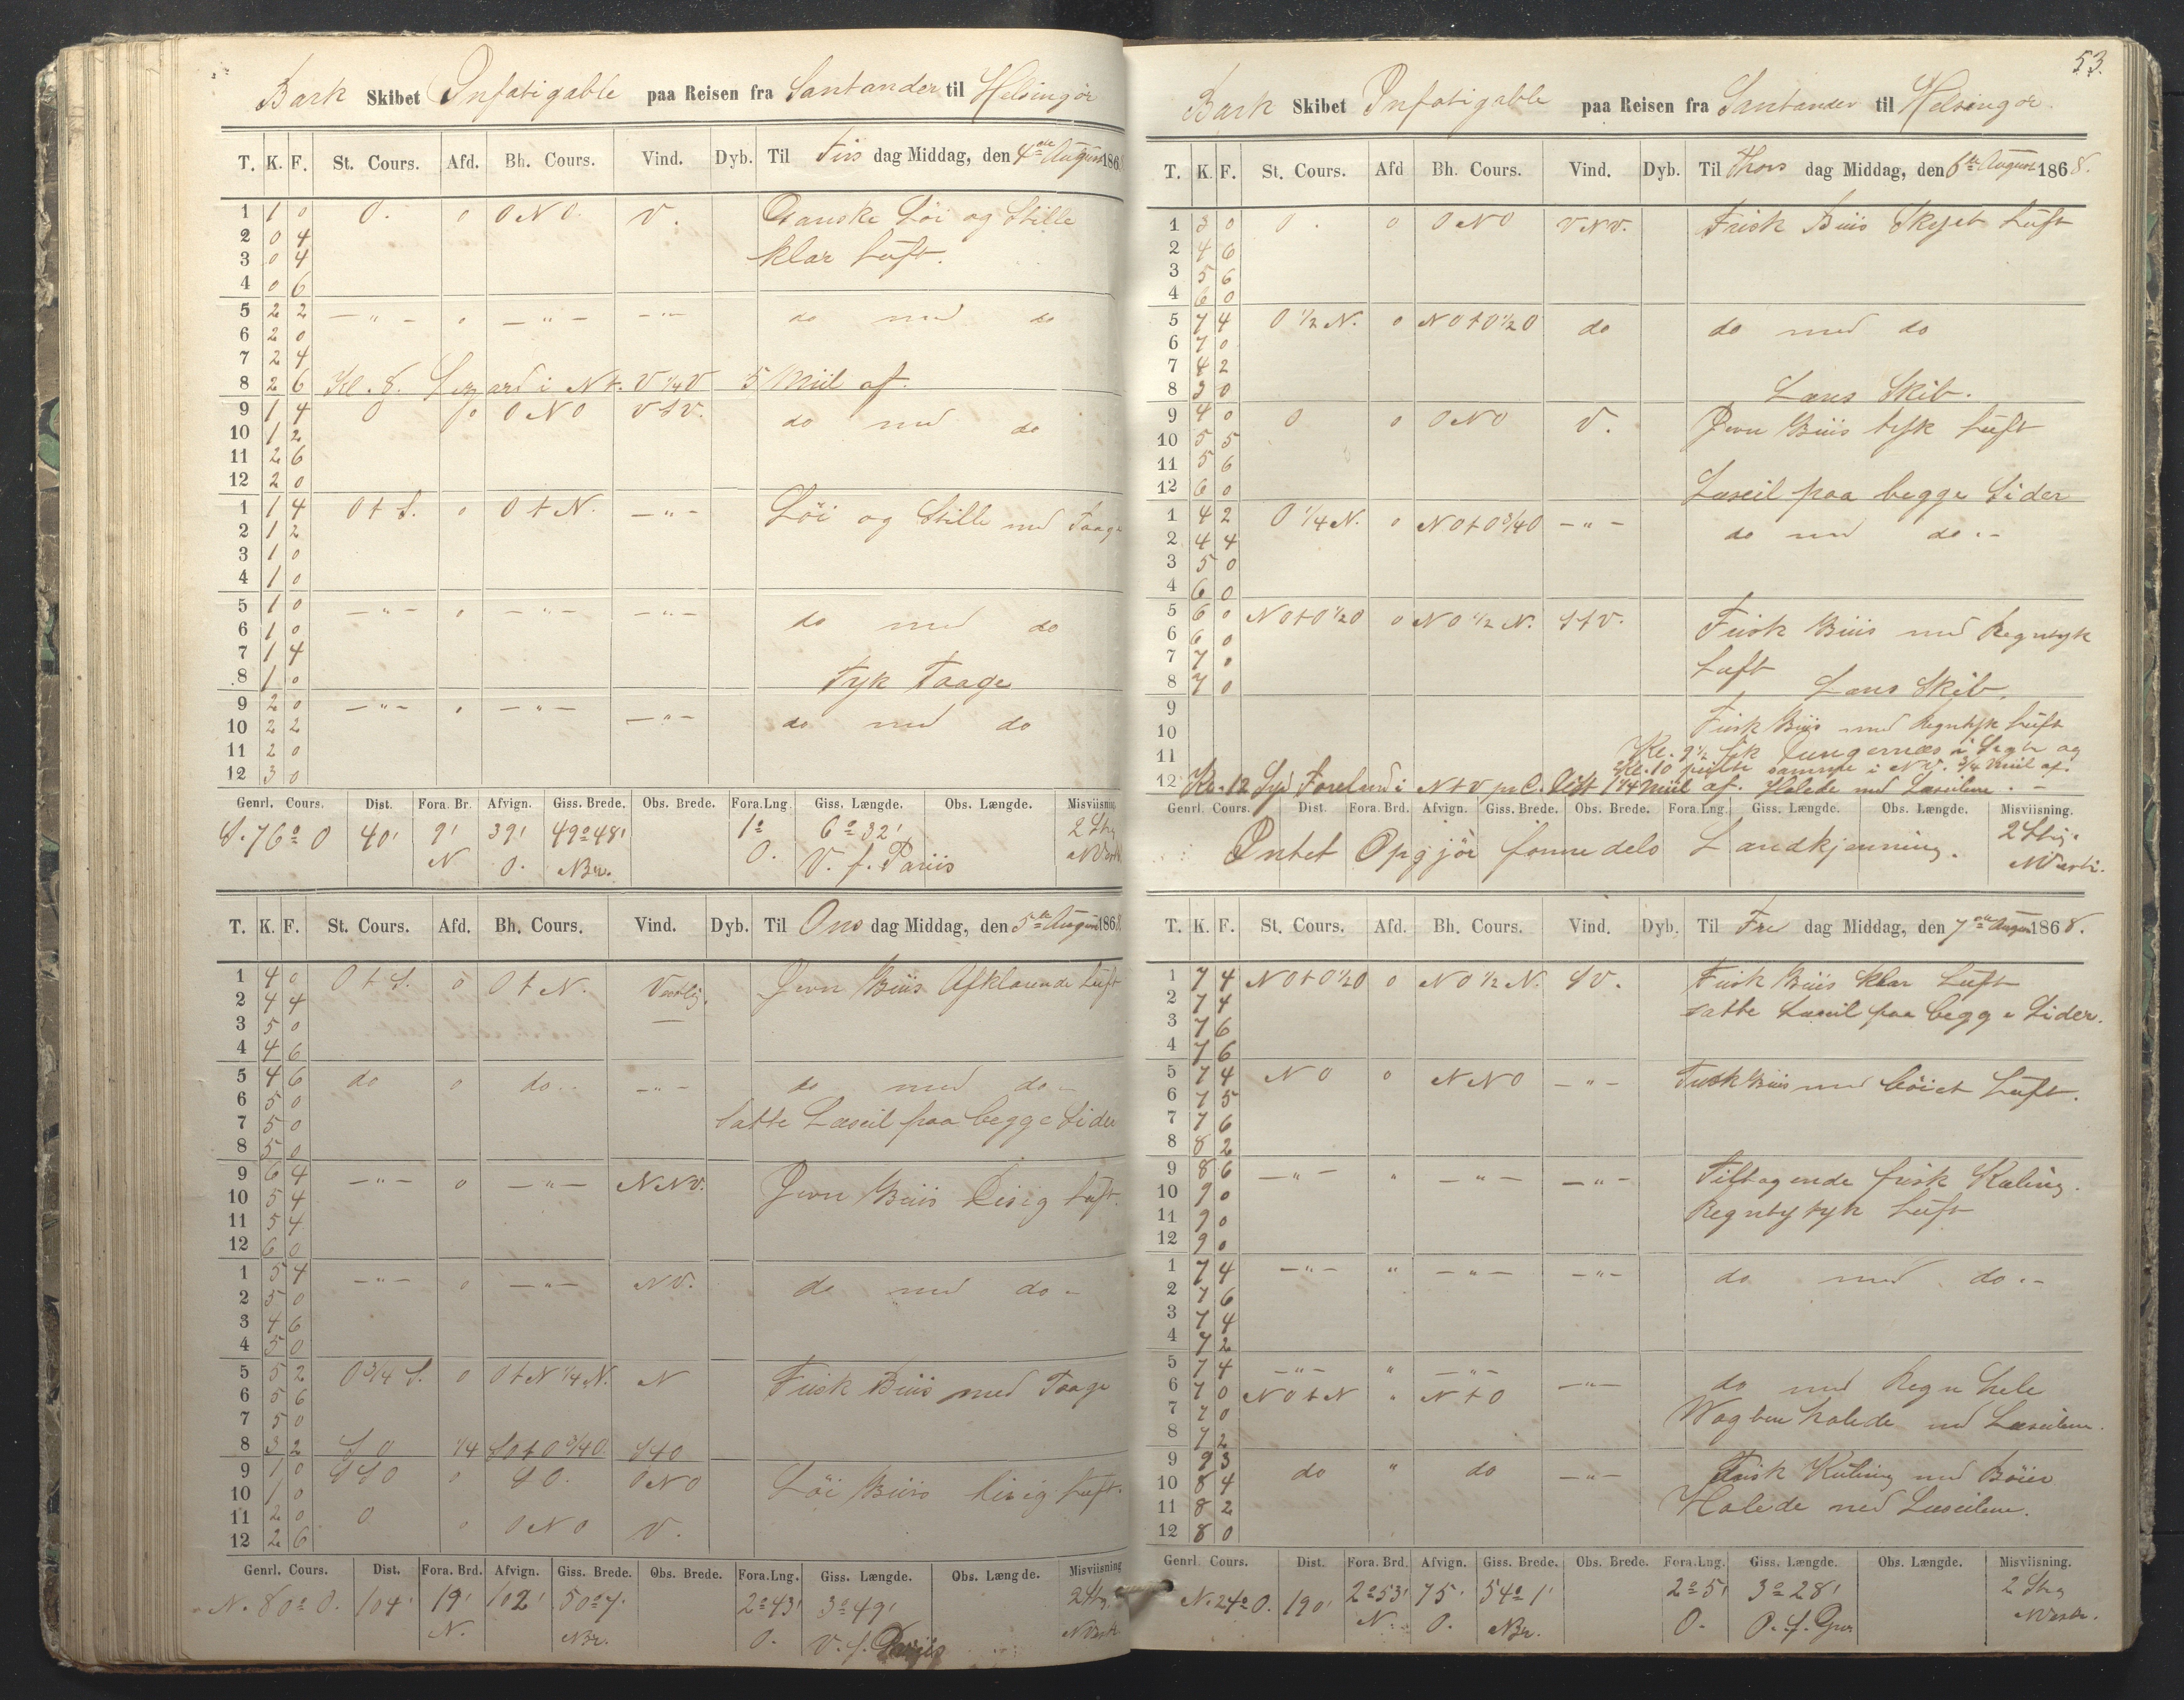 Bark Skibet Infatigable paa Reisen fra Santander til Helsingör
T. K. F. St. Cours. Afd. Bh. Cours. Vind. Dyb. Til Tirs dag Middag, den 4de August 1868
1 1 0 O. 0 ONO. V. Ganske Löi og Stille
2 0 4
3 0 4 klar Luft.
4 0 6
5 2 2 — " — 0 — " — — " — do med do
6 2 0
7 2 4
8 2 6 Kl. 8. Lezard i Nt. V 1/4 V 5 Miil af.
9 1 4 O 0 ONO VSV. do med do
10 1 2
11 2 6
12 2 0
1 1 4 O t S. 0 O t N. — " — Löi og Stille med Taage
2 1 2
3 1 0
4 1 0
5 1 0 — " — 0 — " — — " — do med do
6 1 0
7 1 4
8 1 0 Tyk Taage
9 2 0 — " — 0 — " — — " — do med do
10 2 2
11 2 0
12 3 0
Genrl. Cours. Dist. Fora. Br. Afvign. Giss. Brede. Obs. Brede. Fora.Lng. Giss. Længde. Obs. Længde. Misviisning
S. 76° O 40' 9' 39' 49° 48' 1° 6° 32' 2 Str.
N O. NBr. O. V. f. Pariis
T. K. F. St. Cours. Afd. Bh. Cours. Vind. Dyb. Til Ons dag Middag, den 5te August 1868
1 4 0 O t S. 0 O t N. Vestlig. Jevn Briis Afklarende Luft
2 4 4
3 5 0 —
4 4 6
5 4 6 do 0 do.. — " — do med do –
6 5 0
7 5 0 Satte Læseil paa begge Sider
8 5 0
9 6 4 — " — 0 — " — NNV. Jevn Briis Disig Luft.
10 5 4
11 5 4
12 6 0
1 5 4 — " — 0 — " — NV. do med do –
2 5 0
3 4 6
4 5 0
5 5 2 O 3/4 S. 0 O t N 1/4 N. N Frisk Briis med Taage
6 5 6
7 5 0
8 3 2 S O 1/4 SO t O 3/4 O. StO
9 1 0 SSO 0 SO. ONO Löi Briis disig Luft.
10 1 0
11 2 0 O 0 ONO V.
12 2 6
Genrl. Cours. Dist. Fora. Brd. Afvign. Giss. Brede. Obs. Brede. Fora.Lng. Giss. Længde. Obs. Længde. Misviisning
N. 80° O. 104' 19' 102' 50° 7' 2° 43' 3° 49' 2 Str.
N. NBr. O. V. f. Pariis
53.
Bark Skibet Infatigable paa Reisen fra Santander til Helsingör.
T. K. F. St. Cours. Afd Bh. Cours. Vind. Dyb. Til Thors dag Middag, den 6te August 1868.
1 3 0 O. 0 ONO VNV. Frisk Briis Skyet Luft
2 4 6
3 5 6
4 6 0
5 7 4 O 1/2 N. 0 NO t O 1/2 O do do med do
6 7 0
7 4 2
8 3 0 Læns Skib.
9 4 0 O 0 ONO V. Jevn Briis tyk Luft
10 5 5
11 5 6
12 6 0 Læseil paa begge Sider
1 4 2 O 1/4 N. 0 NO t O 3/4 O — " — do med do . –
2 4 4
3 5 0
4 6 0
5 6 0 NO t O 1/2 O 0 NO 1/2 N. StV. Frisk Briis med Regntyk
6 6 0
7 7 0 Luft
8 7 0 Læns Skib.
9 Frisk Briis med Regntyk Luft
10 Kl. 9 1/2 fik Dungernæs i Sigte og
11 Kl. 10 peilte samme i NV. 3/4 Miil af.
12 Kl. 12 Syd Foreland i NtV pr C. Dist 1 1/4 Miil af. Halede ned Læseilene. –
Genrl. Cours. Dist. Fora. Brd. Afvign. Giss. Brede. Obs. Brede. Fora.Lng. Giss. Længde. Obs. Længde. Misviisning.
Intet Opgjör formedels Landkjenning. 2 Str.
T. K. F. St. Cours. Afd. Bh. Cours. Vind. Dyb. Til Fre dag Middag, den 7de August 1868.
1 7 4 NO t O 1/2 O 0 NO 1/2 N. SV. Frisk Briis klar Luft
2 7 4 satte Læseil paa begge Sider.
3 7 6
4 7 6
5 7 4 NO 0 NNO — " — Frisk Briis med böiet Luft.
6 7 5
7 7 6
8 8 2
9 8 6 — " — " — " — — " — Tiltagende frisk Kuling.
10 9 0
11 9 0 Luft
12 9 0
1 7 4 — " — " — " — — " — do med do . –
2 7 6
3 7 4
4 7 2
5 7 4 — " — " — " — — " — do med Regn hele
6 7 0 NO t N " N t O
7 7 0 Vagten halede ned Læseilene.
8 7 2
9 9 3 do " do — " — Frisk Kuling med Böier
10 8 4
11 8 2 Halede ned Læseilene.
12 8 0
Genrl. Cours. Dist. Fora. Brd. Afvign. Giss. Brede. Obs. Brede. Fora.Lng. Giss. Længde. Obs. Længde. Misviisning.
N. 24° O. 190' 2° 53' 75' 54° 1' 2° 5' 3° 28' 2 Str.
N. O. NBr. O. O. f. Grw